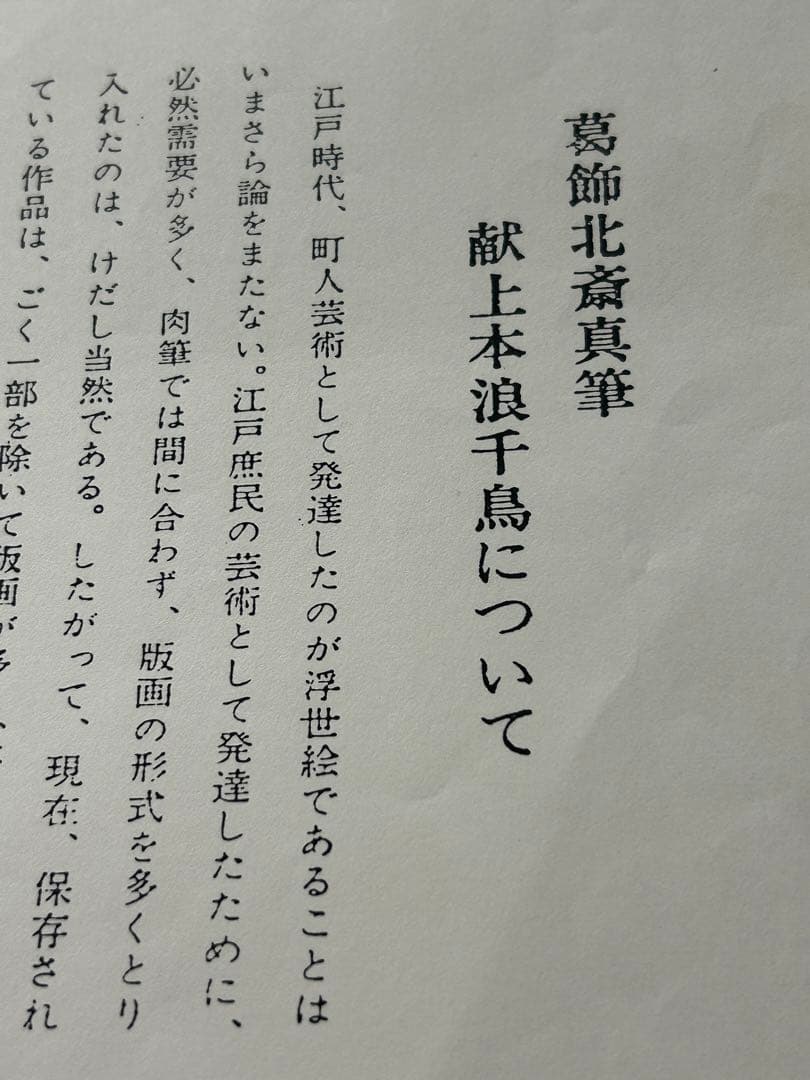 葛飾北斎真筆
献上本浪千鳥について
江戸時代、町人芸術として発達したのが浮世絵であることは
いまさら論をまたない。江戸庶民の芸術として発達したために、
必然需要が多く、肉筆では間に合わず、版画の形式を多くとり
入れたのは、けだし当然である。したがって、現在、保存され
ている作品は、ごく一部を除いて版画が多